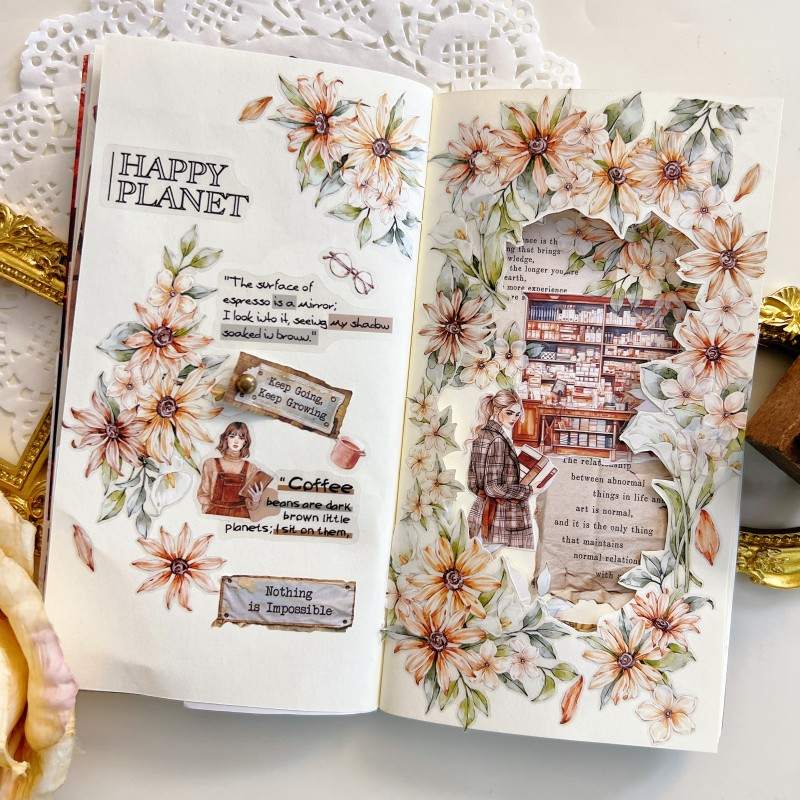 HAPPY
PLANET
"The surface of
espresso is a mirror;
I look into it, seeing my shadow
soaked in brown."
Keep Going,
Keep Growing
"Coffee
beans are dark
brown little
planets; I sit on them,
Nothing
is Impossible
is th
that brings
the longer you
earth,
more experience
The relationship
between abnormal
things in life
art is normal,
and it is the only thing
that maintains
normal
with